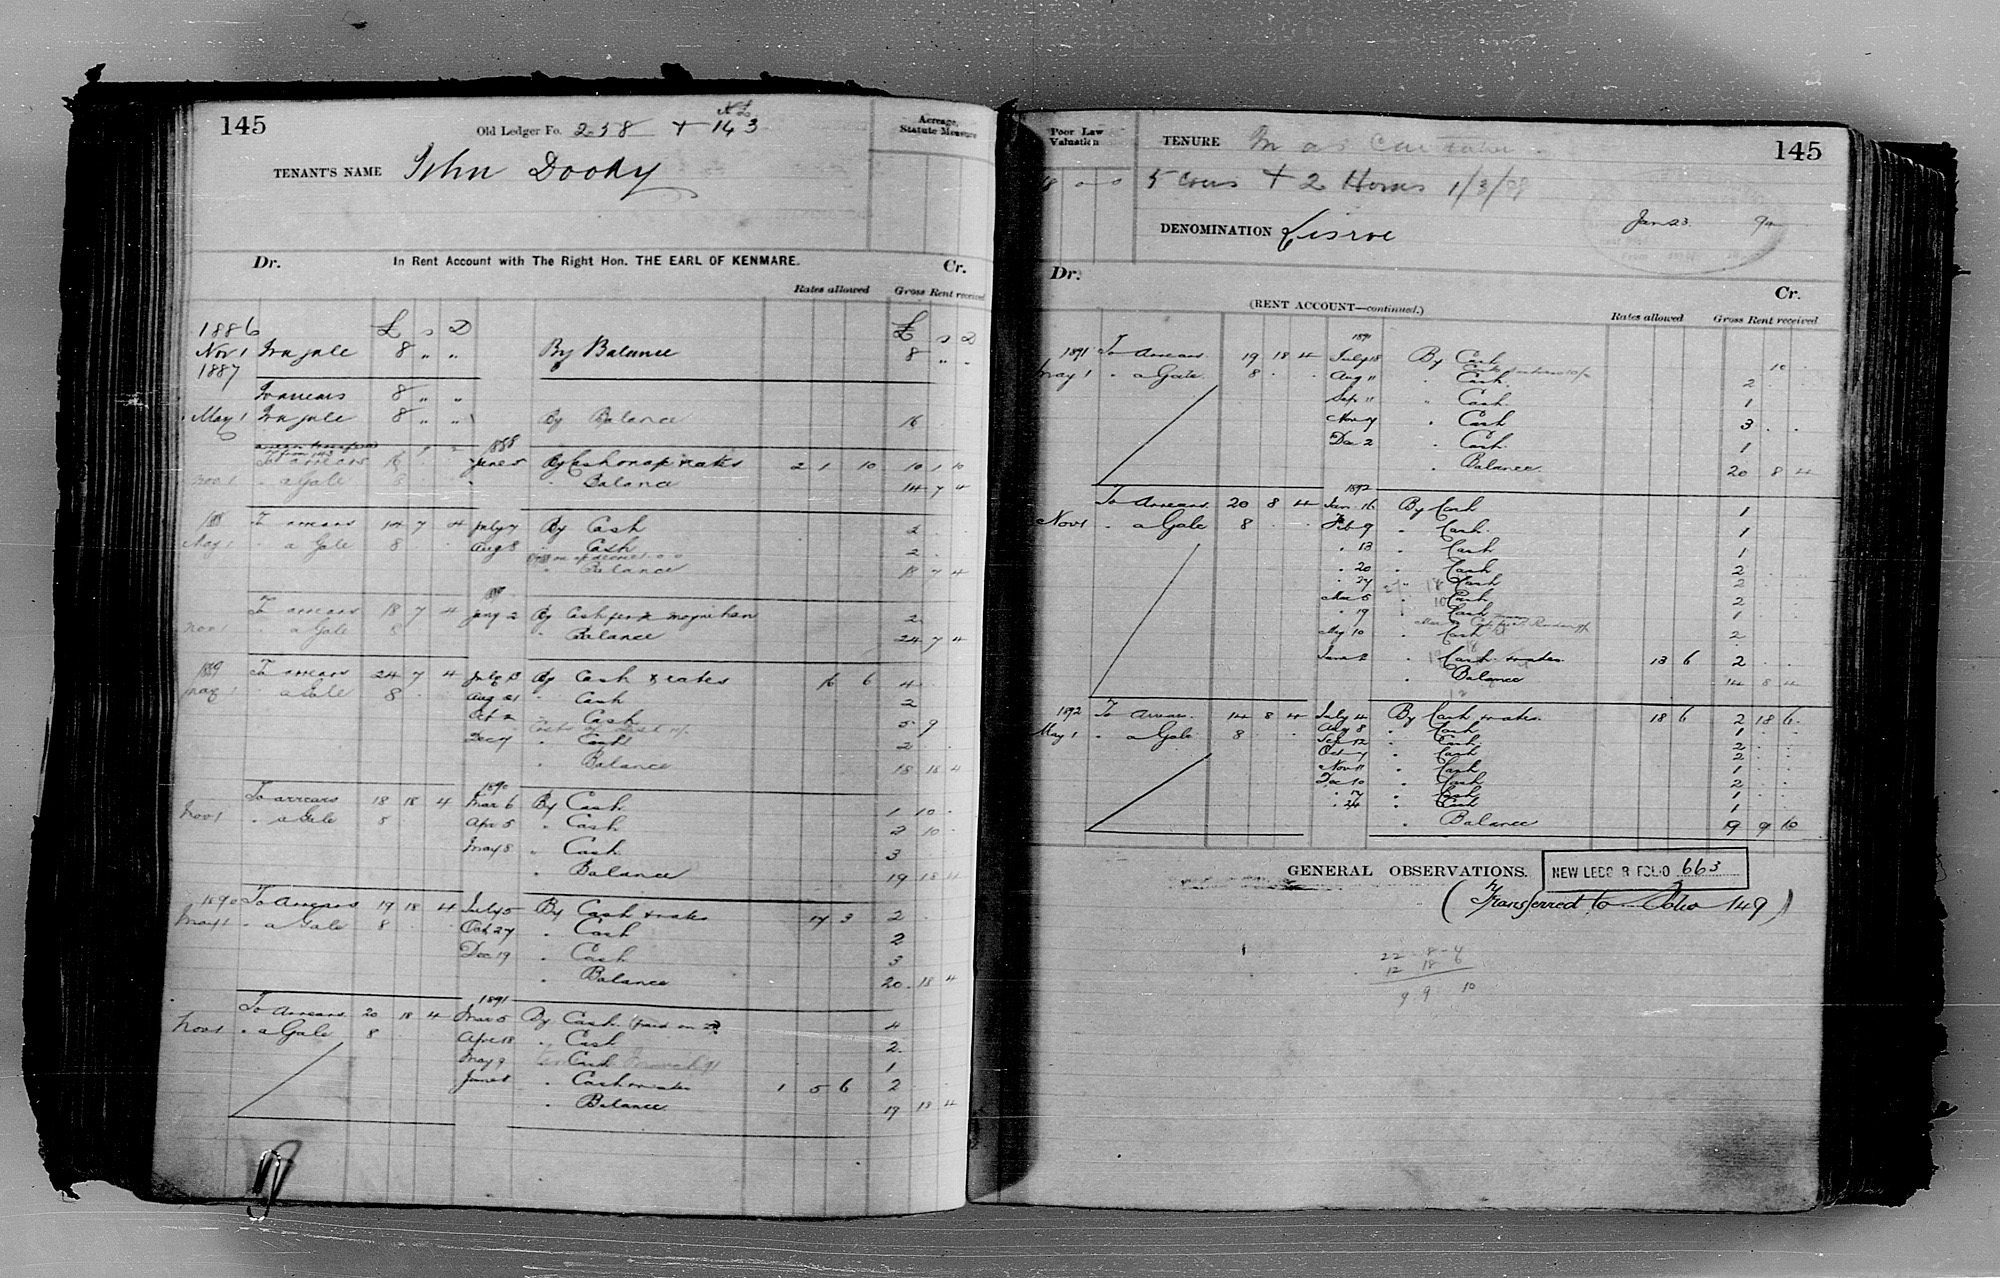 145
Old Ledger Fo. 258 + 143
TENANT'S NAME John Doody
Acreage, Statute Measure
Dr. In Rent Account with The Right Hon. THE EARL OF KENMARE. Cr.
Rates allowed Gross Rent received
1886 £ s D £ s D
Nov 1 To a gale 8 " " By Balance 8 " "
1887
To arrears 8 " "
May 1 To a gale 8 " " By Balance 16
1888
To arrears 16 June 5 By Cash on a/c rates 2 1 10 10 1 10
Nov 1 " a Gale 8 " Balance 14 7 4
1888 To arrears 14 7 4 July 7 By Cash 2
May 1 " a Gale 8 Aug 8 " Cash 2
" Balance 18 7 4
To arrears 18 7 4 Jany 2 By Cash per Moynihan 2
Nov 1 " a Gale 8 " Balance 24 7 4
1889 To arrears 24 7 4 July 13 By Cash & rates 16 6 4
May 1 " a Gale 8 Aug 21 " Cash 2
Oct 2 " Cash 5 9
Dec 7 " Cash 2
" Balance 18 18 4
1890
To arrears 18 18 4 Mar 6 By Cash 1 10
Nov 1 " a Gale 8 Apr 5 " Cash 2 10
May 8 " Cash 3
" Balance 19 18 4
1890 To Arrears 19 18 4 July 5 By Cash & rates 17 3 2
May 1 " a Gale 8 Oct 27 " Cash 2
Dec 19 " Cash 3
" Balance 20 18 4
1891
To Arrears 20 18 4 Mar 5 By Cash (paid on 4
Nov 1 " a Gale 8 Apr 18 " Cash 2
May 9 " Cash 1
June 8 " Cash & rates 1 5 6 2
" Balance 19 18 4
Poor Law Valuation
TENURE In as Caretaker
145
5 Cows + 2 Horses 1/3/88
DENOMINATION Lisroe Jan 23
Dr. (RENT ACCOUNT—continued.) Cr.
Rates allowed Gross Rent received
1891
1891 To Arrears 19 18 4 July 18 By Cash 10
May 1 " a Gale 8 Aug 11 " Cash 2
Sep 11 " Cash 1
Nov 7 " Cash 3
Dec 2 " Cash 1
" Balance 20 8 4
1892
To Arrears 20 8 4 Jan 16 By Cash 1
Nov 1 " a Gale 8 Feb 9 " Cash 1
" 13 " Cash 1
" 20 " Cash 2
" 27 " Cash 2
Mar 5 " Cash 2
" 19 " Cash 1
May 10 " Cash 2
June 2 " Cash & rates 13 6 2
" Balance 14 8 4
1892 To Arrears 14 8 4 July 4 By Cash & rates 18 6 2 18 6
May 1 " a Gale 8 Aug 8 " Cash 1
Sep 12 " Cash 2
Oct 7 " Cash 2
Nov 11 " Cash 1
Dec 10 " Cash 2
" 17 " Cash 1
" 24 " Cash 1
" Balance 9 9 10
GENERAL OBSERVATIONS.
NEW LEDG R FOLIO 663
(Transferred to Folio 149)
22 8 4
12 18 6
9 9 10